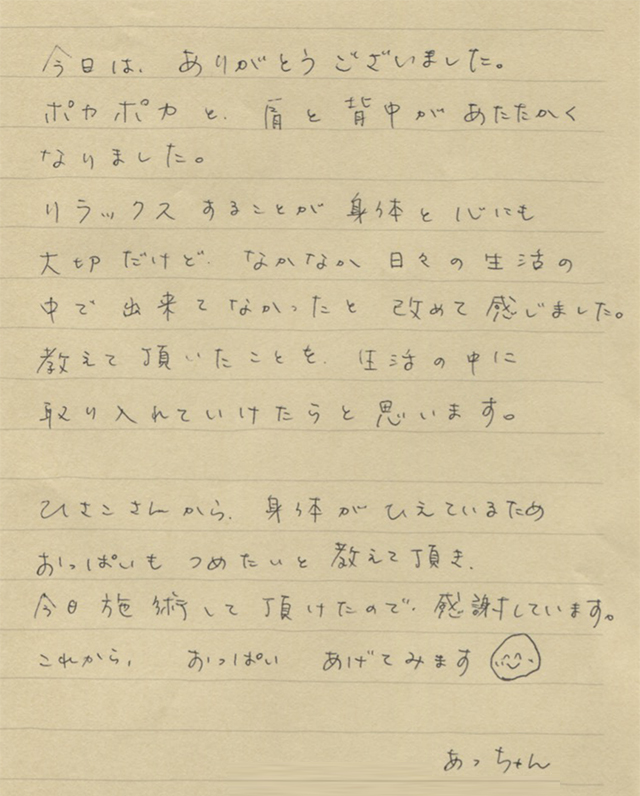 今日は、ありがとうございました。
ポカポカと、肩と背中があたたかく
なりました。
リラックスすることが身体と心にも
大切だけど、なかなか日々の生活の
中で出来てなかったと改めて感じました。
教えて頂いたことを、生活の中に
取り入れていけたらと思います。
ひさこさんから、身体がひえているため
おっぱいもつめたいと教えて頂き、
今日施術して頂けたので、感謝しています。
これから、おっぱいあげてみます
あっちゃん